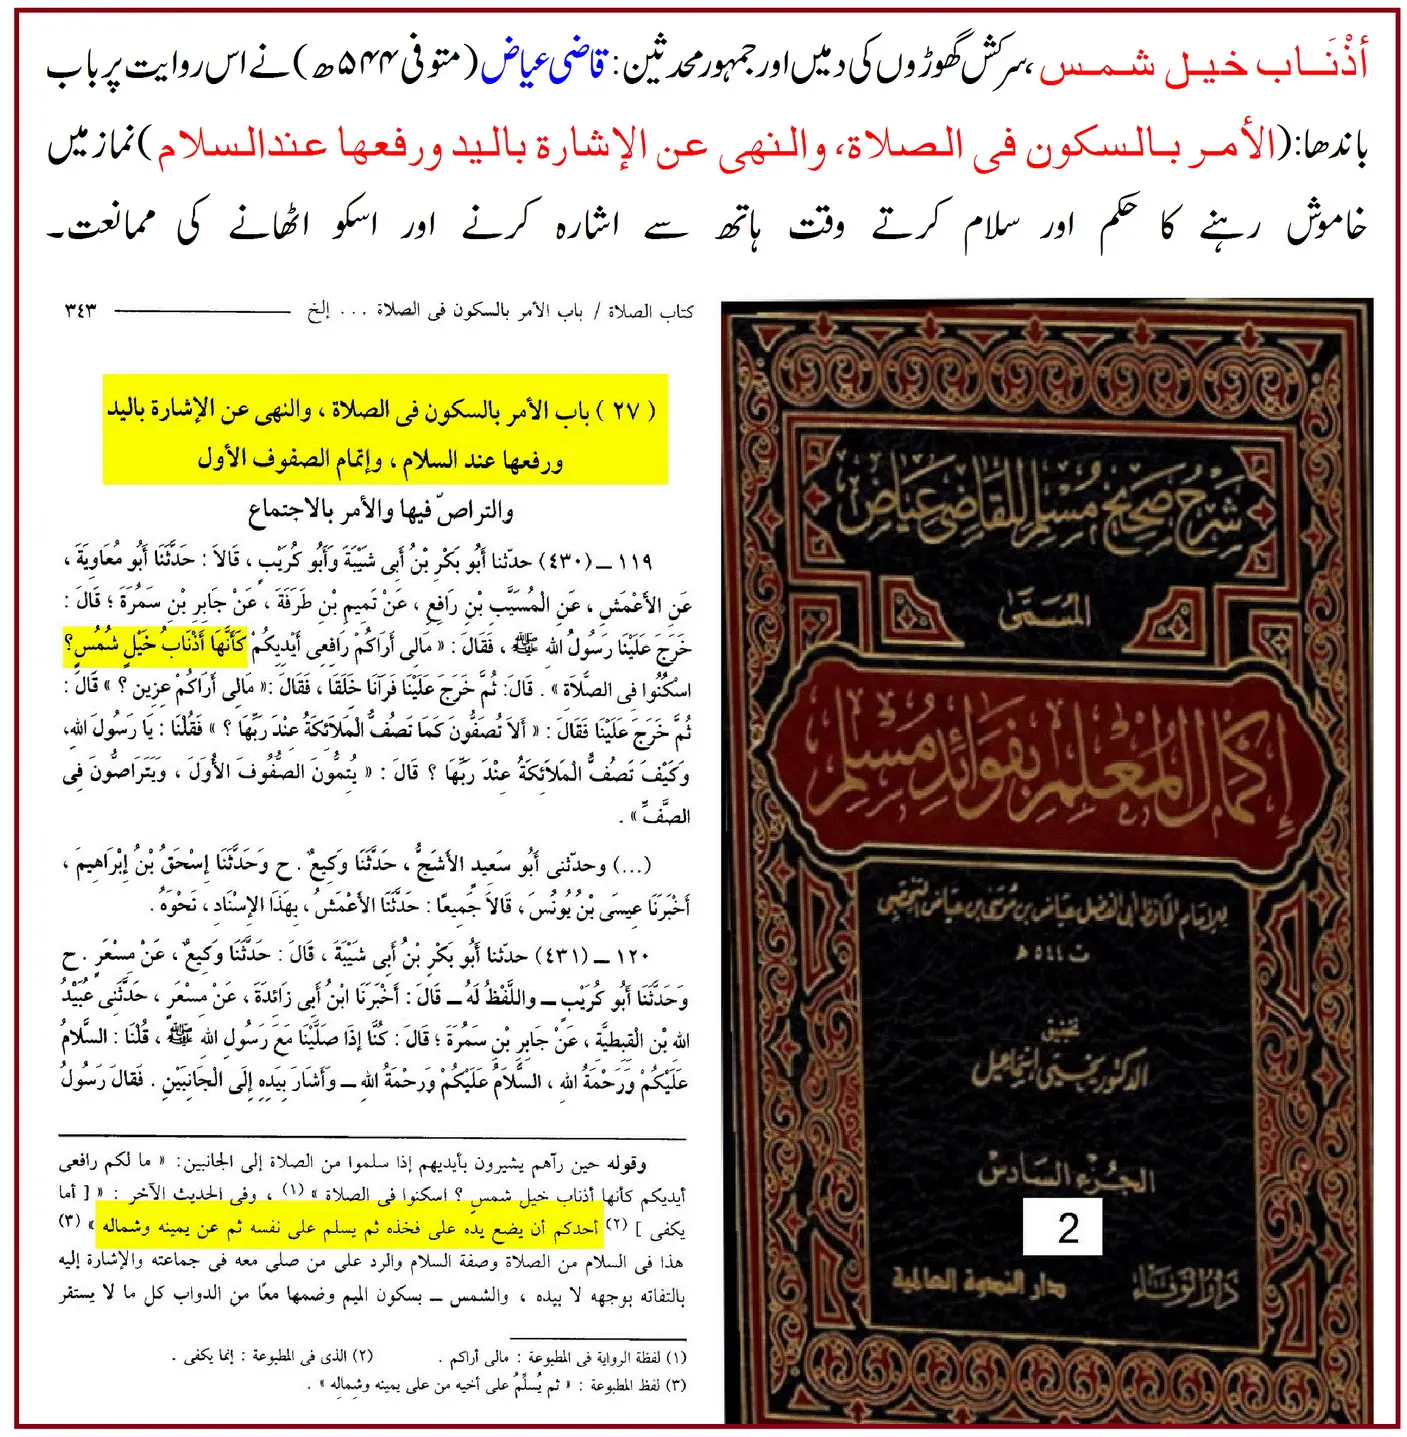 أذْنَاب خيل شمس ،سرکش گھوڑوں کی دمیں اور جمہور محدثین: قاضی عیاض (متوفی ۵۴۴ھ) نے اس روایت پر باب
باندھا: (الأمر بالسكون فى الصلاة، والنهى عن الإشارة باليد ورفعها عند السلام) نماز میں
خاموش رہنے کا حکم اور سلام کرتے وقت ہاتھ سے اشارہ کرنے اور اسکو اٹھانے کی ممانعت۔
كتاب الصلاة / باب الأمر بالسكون فى الصلاة ... إلخ ٣٤٣
( ٢٧ ) باب الأمر بالسكون فى الصلاة ، والنهى عن الإشارة باليد
ورفعها عند السلام ، وإتمام الصفوف الأول
والتراصّ فيها والأمر بالاجتماع
١١٩ ــ (٤٣٠) حدّثنا أَبُو بَكْرِ بْنُ أَبِى شَيْبَةَ وَأَبُو كُرَيْبٍ ، قَالاَ : حَدَّثَنَا أَبُو مُعَاوِيَةَ ،
عَنِ الأَعْمَشِ ، عَنِ الْمُسَيَّبِ بْنِ رَافِعٍ ، عَنْ تَمِيمِ بْنِ طَرَفَةَ ، عَنْ جَابِرِ بْنِ سَمُرَةَ ؛ قَالَ :
خَرَجَ عَلَيْنَا رَسُولُ اللهِ ﷺ ، فَقَالَ : « مَالِى أَرَاكُمْ رَافِعِى أَيْدِيكُمْ كَأَنَّهَا أَذْنَابُ خَيْلٍ شُمُسٍ ؟
اسْكُنُوا فِى الصَّلاَةِ » . قَالَ: ثُمَّ خَرَجَ عَلَيْنَا فَرَآنَا حَلَقًا ، فَقَالَ :« مَالِى أَرَاكُمْ عِزِينَ ؟ » قَالَ :
ثُمَّ خَرَجَ عَلَيْنَا فَقَالَ : « أَلاَ تُصَفُّونَ كَمَا تَصُفُّ الْمَلاَئِكَةُ عِنْدَ رَبِّهَا ؟ » فَقُلْنَا : يَا رَسُولَ اللهِ،
وَكَيْفَ تَصُفُّ الْمَلاَئِكَةُ عِنْدَ رَبِّهَا ؟ قَالَ : « يُتِمُّونَ الصُّفُوفَ الأُوَلَ ، وَيَتَرَاصُّونَ فِى
الصَّفِّ » .
(...) وحدّثنى أَبُو سَعِيدٍ الأَشَجُّ ، حَدَّثَنَا وَكِيعٌ . ح وَحَدَّثَنَا إِسْحَقُ بْنُ إِبْرَاهِيمَ ،
أَخْبَرَنَا عِيسَى بْنُ يُونُسَ ، قَالاَ جَمِيعًا : حَدَّثَنَا الأَعْمَشُ ، بِهَذَا الإِسْنَادِ ، نَحْوَهُ .
١٢٠ ــ (٤٣١) حدّثنا أَبُو بَكْرِ بْنُ أَبِى شَيْبَةَ ، قَالَ : حَدَّثَنَا وَكِيعٌ ، عَنْ مِسْعَرٍ . ح
وَحَدَّثَنَا أَبُو كُرَيْبٍ ــ وَاللَّفْظُ لَهُ ــ قَالَ : أَخْبَرَنَا ابْنُ أَبِى زَائِدَةَ ، عَنْ مِسْعَرٍ ، حَدَّثَنِى عُبَيْدُ
اللهِ بْنُ الْقِبْطِيَّةِ ، عَنْ جَابِرِ بْنِ سَمُرَةَ ؛ قَالَ : كُنَّا إِذَا صَلَّيْنَا مَعَ رَسُولِ اللهِ ﷺ ، قُلْنَا : السَّلاَمُ
عَلَيْكُمْ وَرَحْمَةُ اللهِ ، السَّلاَمُ عَلَيْكُمْ وَرَحْمَةُ اللهِ ــ وَأَشَارَ بِيَدِهِ إِلَى الْجَانِبَيْنِ . فَقَالَ رَسُولُ
وقوله حين رآهم يشيرون بأيديهم إذا سلموا من الصلاة إلى الجانبين: « ما لكم رافعى
أيديكم كأنها أذناب خيل شمس ؟ اسكنوا فى الصلاة » (١) ، وفى الحديث الآخر : « [ أما
يكفى ] (٢) أحدكم أن يضع يده على فخذه ثم يسلم على نفسه ثم عن يمينه وشماله » (٣)
هذا فى السلام من الصلاة وصفة السلام والرد على من صلى معه فى جماعته والإشارة إليه
بالتفاته بوجهه لا بيده ، والشمس ــ بسكون الميم وضمها معًا من الدواب كل ما لا يستقر
(١) لفظة الرواية فى المطبوعة : مالى أراكم . (٢) الذى فى المطبوعة : إنما يكفى .
(٣) لفظ المطبوعة : « ثم يُسلِّمُ على أخيه من على يمينه وشِمالِه » .
شرح صحيح مسلم للقاضي عياض
المسمى
إكمال المعلم بفوائد مسلم
للإمام الحافظ أبي الفضل عياض بن موسى بن عياض اليحصبي
ت ٥٤٤ هـ
تحقيق
الدكتور يحيى إسماعيل
الجزء السادس
2
دار الوفاء دار الندوة العالمية